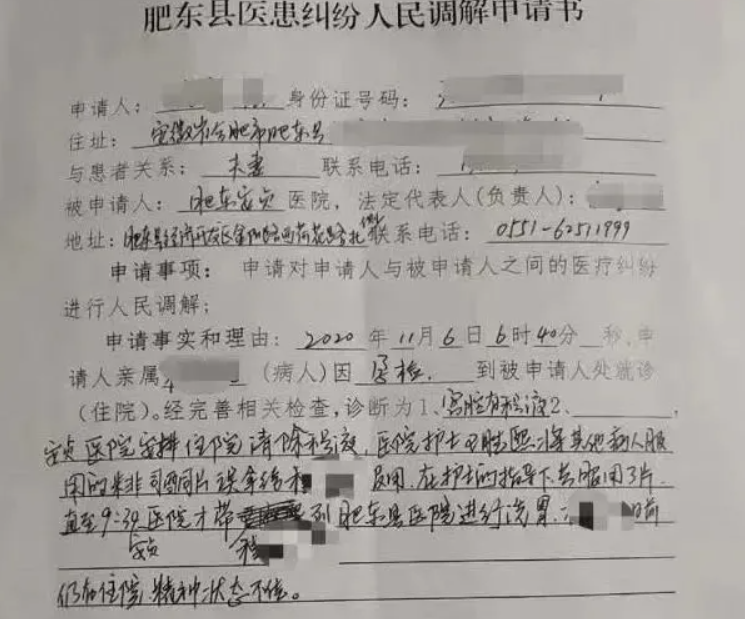 肥东县医患纠纷人民调解申请书
申请人： 身份证号码：
住址：安徽省合肥市肥东县
与患者关系：夫妻 联系电话：
被申请人：肥东安贞医院，法定代表人(负责人)：
地址：肥东县经济开发区金阳路西荷花路北侧联系电话：0551-62511999
申请事项：申请对申请人与被申请人之间的医疗纠纷
进行人民调解；
申请事实和理由：2020年11月6日6时40分 秒，申
请人亲属 (病人)因孕检. 到被申请人处就诊
(住院)。经完善相关检查，诊断为1、宫腔有积液2、
安贞医院安排住院清除积液，医院护士 将其他病人服
用的米非司酮片误拿给 服用，在护士的指导下共服用3片.
直至9:39医院才带 到肥东县医院进行洗胃， 目前
安贞
仍在住院，精神状态不佳。